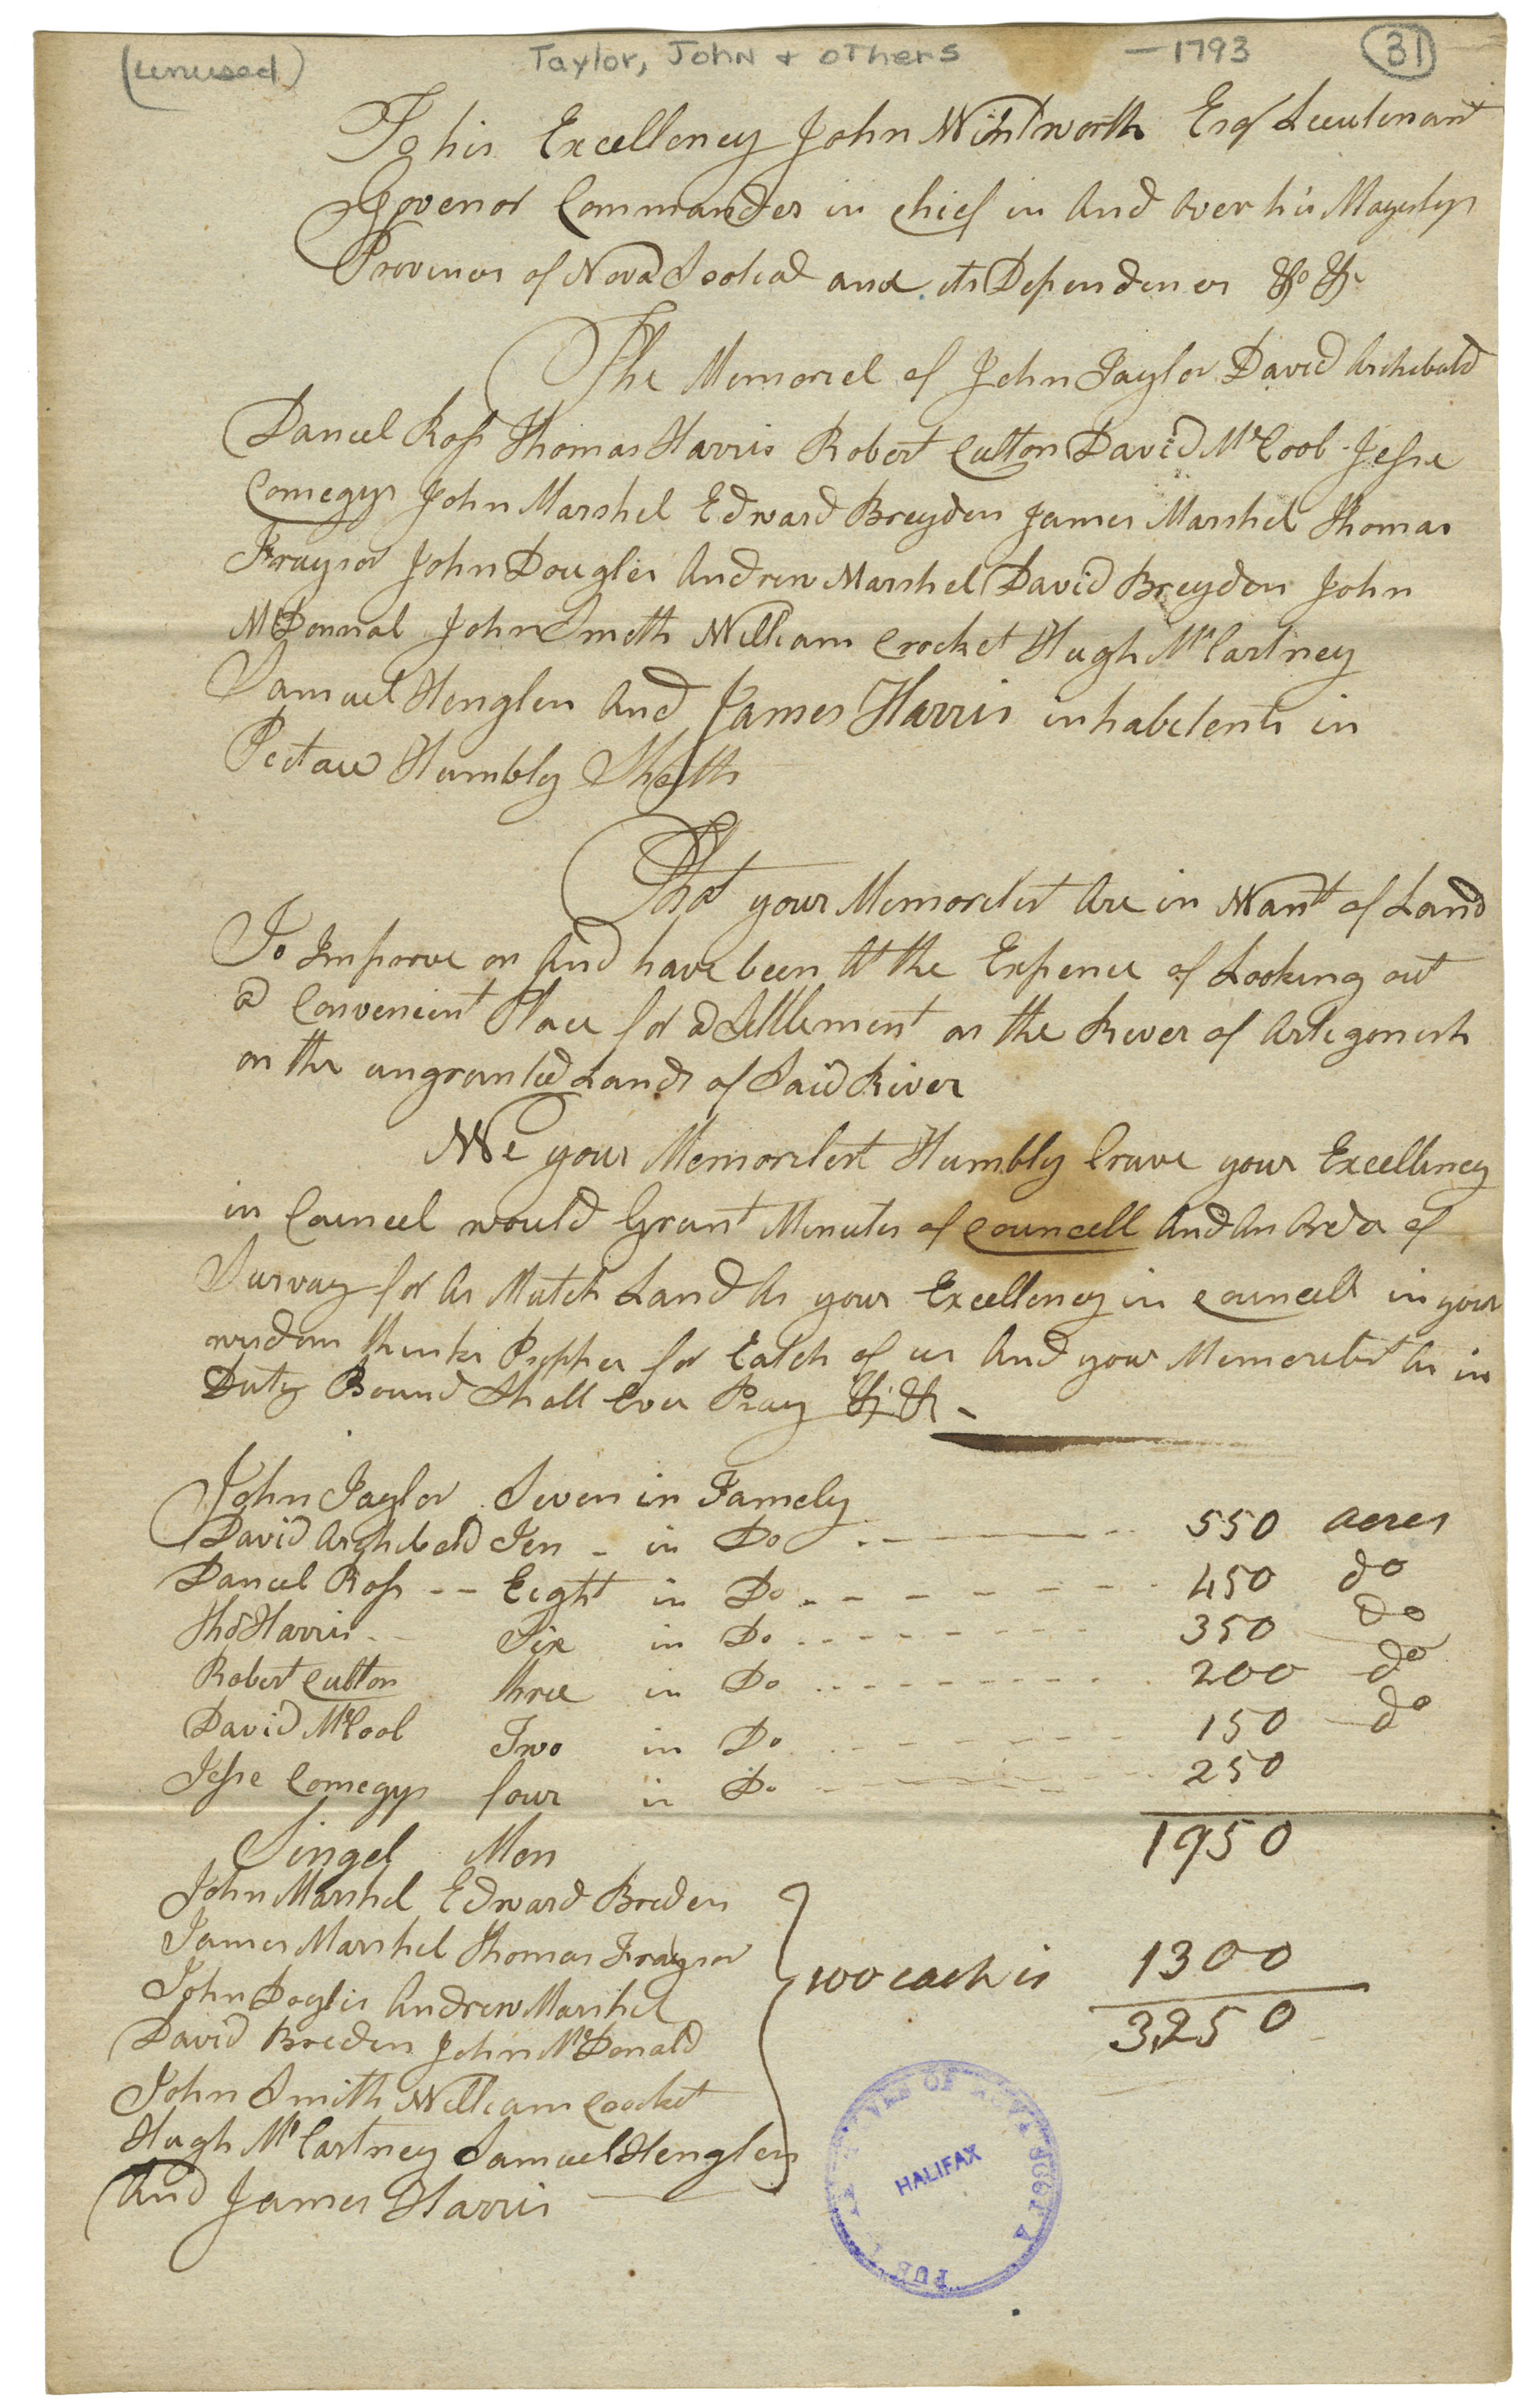 (unused) Taylor, John & others —1793 31
To his Excellency John Wintworth Esqr Lieutenant
Govenor Commander in chief in And Over his Magestys
Province of Nova Scotia and its Dependences &c &c
The Memoriel of John Taylor David Archebald
Daneel Ross Thomas Harris Robert Cutton David McCool Jesse
Comegys John Marshel Edward Breyden James Marshel Thomas
Fraysor John Dougles Andrew Marshel David Breyden John
McDonnal John Smeth William Crocket Hugh McCartney
Samuel Henglen And James Harris inhabetents in
Pectau Humbly Sheweth
That your Memorelest Are in Want of Land
To Improve on And have been At the Expence of Looking out
a Convenient Place for a Settlement on the River of Artegonish
on the ungranted Lands of Said River
We your Memorelest Humbly Crave your Excellency
in Councel would Grant Minutes of Councell And An Order of
Survay for As Mutch Land As your Excellency in Councell in your
wisdom thinks Propper for Eatch of us And your Memorelest As in
Duty Bound Shall Ever Pray &c &c
John Taylor Seven in Famely
David Archebald Ten - in Do 550 acres
Daneel Ross -- Eight in Do 450 do
Thos Harris Six in Do 350 do
Robert Cutton three in Do 200 do
David McCool Two in Do 150 do
Jesse Comegys four in Do 250
Singel Men 1950
John Marshel Edward Breden
James Marshel Thomas Fraysor
John Doglis Andrew Marshel 100 each is 1300
David Breden John McDonald 3250
John Smith William Crocket
Hugh McCartney Samuel Henglen
And James Harris
PUBLIC ARCHIVES OF NOVA SCOTIA
HALIFAX